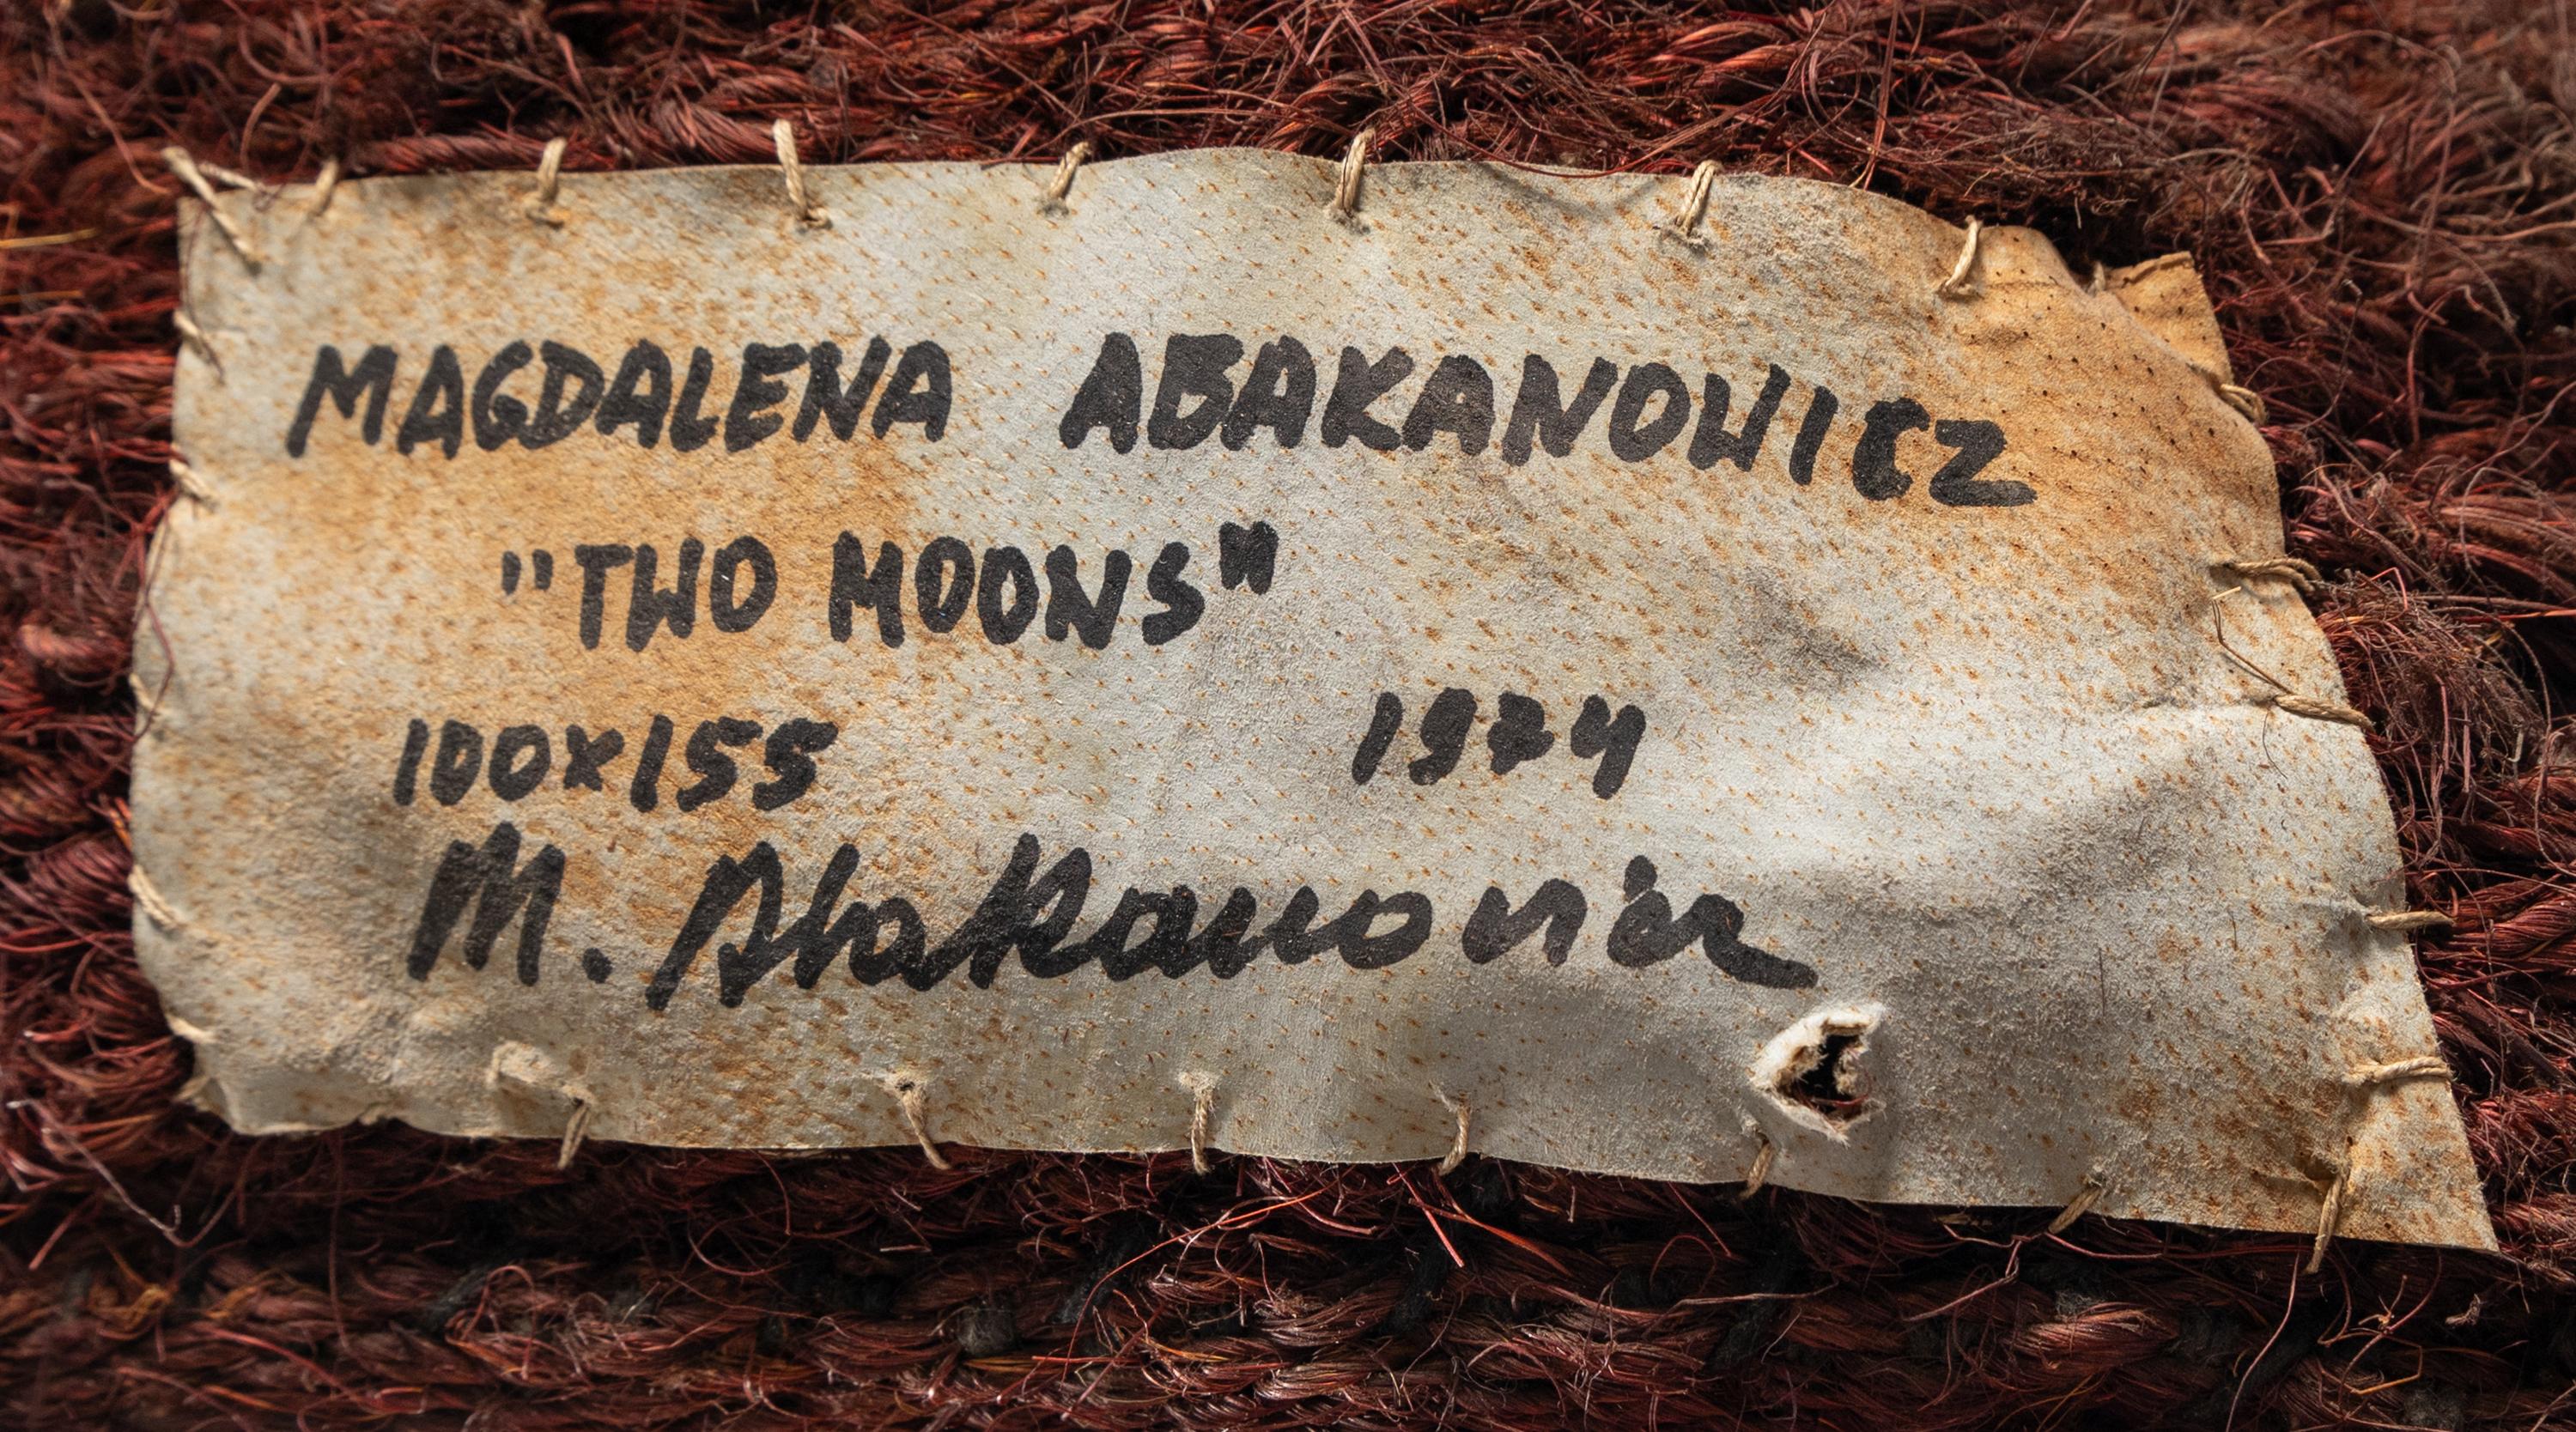 MAGDALENA ABAKANOWICZ
"TWO MOONS"
100x155 1974
M. Abakanowicz